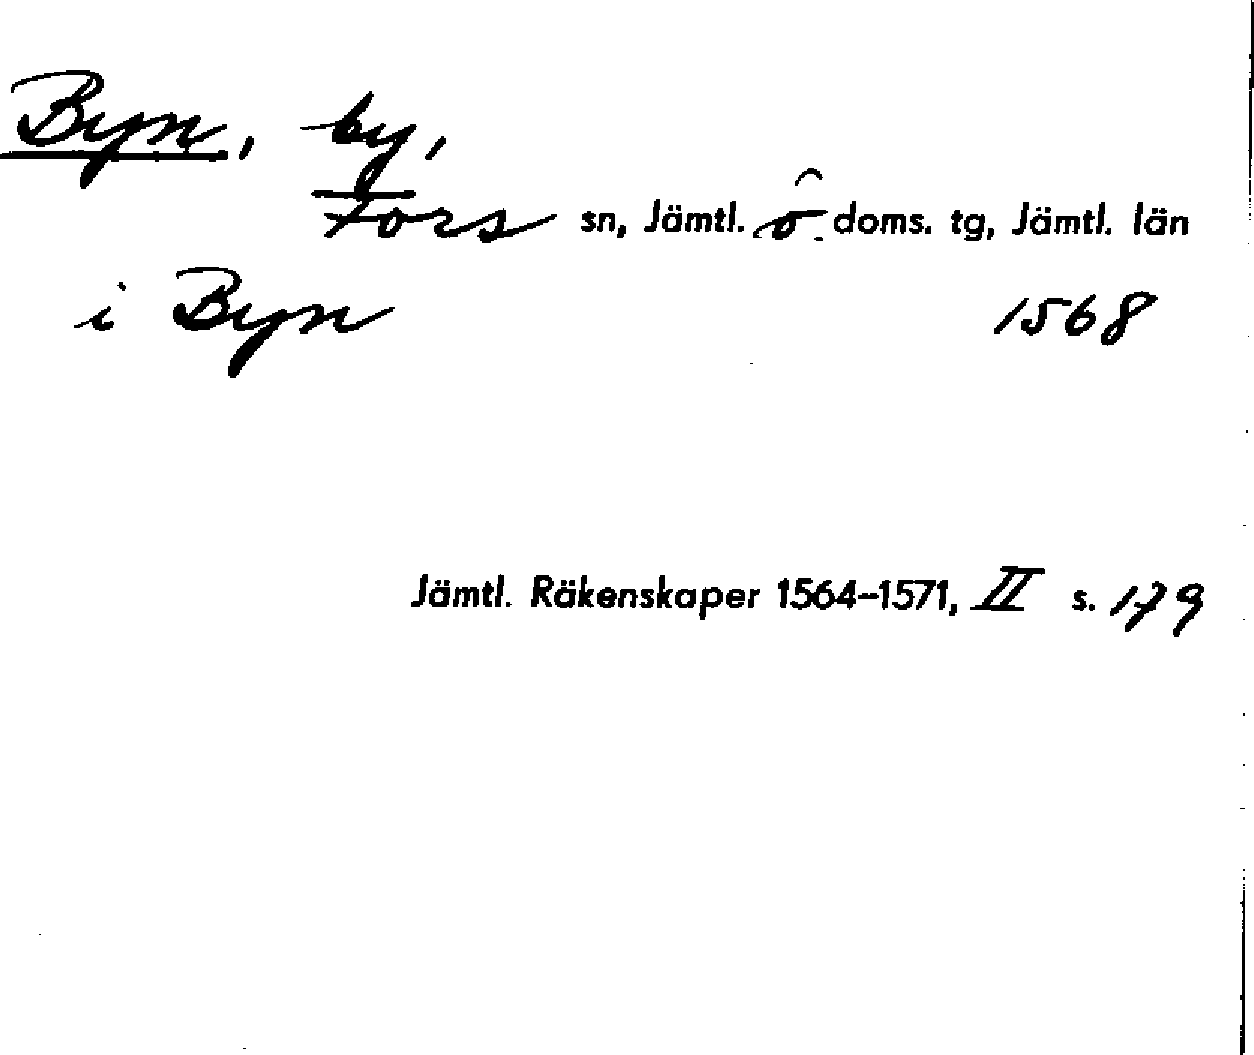 Byn, by,
Fors sn, Jämtl. ö. doms. tg, Jämtl. län
i Byn 1568
Jämtl. Räkenskaper 1564–1571, II s. 179